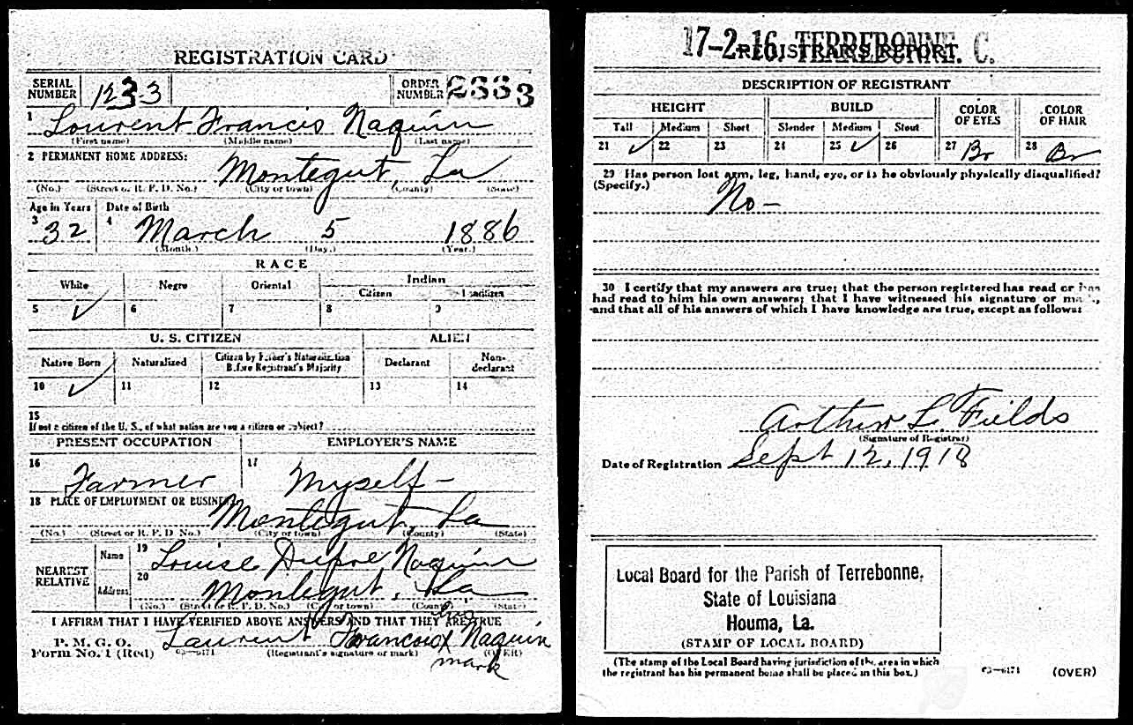 REGISTRATION CARD
SERIAL NUMBER 1233 ORDER NUMBER 2333
1 Lourent Francis Naquin
(First name) (Middle name) (Last name)
2 PERMANENT HOME ADDRESS:
Montegut, La
(No.) (Street or R. F. D. No.) (City or town) (County) (State)
Age in Years Date of Birth
3 32 4 March 5 1886
(Month.) (Day.) (Year.)
RACE
White Negro Oriental Indian
Citizen Noncitizen
5 ✓ 6 7 8 9
U. S. CITIZEN ALIEN
Native Born Naturalized Citizen by Father's Naturalization Before Registrant's Majority Declarant Non-declarant
10 ✓ 11 12 13 14
15
If not a citizen of the U. S., of what nation are you a citizen or subject?
PRESENT OCCUPATION EMPLOYER'S NAME
16 Farmer 17 Myself-
18 PLACE OF EMPLOYMENT OR BUSINESS
Montegut, La
(No.) (Street or R. F. D. No.) (City or town) (County) (State)
NEAREST RELATIVE
Name 19 Louise Dupre Naquin
Address 20 Montegut, La
(No.) (Street or R. F. D. No.) (City or town) (County) (State)
I AFFIRM THAT I HAVE VERIFIED ABOVE ANSWERS AND THAT THEY ARE TRUE
P. M. G. O.
Form No. 1 (Red) 03-6171
Laurent Francois his x Naquin
mark
(Registrant's signature or mark) (OVER)
17-2-16, TERREBONNE. C.
REGISTRAR'S REPORT.
DESCRIPTION OF REGISTRANT
HEIGHT BUILD COLOR OF EYES COLOR OF HAIR
Tall Medium Short Slender Medium Stout
21 ✓ 22 23 24 25 ✓ 26 27 Br 28 Br
29 Has person lost arm, leg, hand, eye, or is he obviously physically disqualified?
(Specify.)
No-
30 I certify that my answers are true; that the person registered has read or has
had read to him his own answers; that I have witnessed his signature or mark,
and that all of his answers of which I have knowledge are true, except as follows:
Arthur L. Fields
(Signature of Registrar)
Date of Registration Sept 12, 1918
Local Board for the Parish of Terrebonne,
State of Louisiana
Houma, La.
(STAMP OF LOCAL BOARD)
(The stamp of the Local Board having jurisdiction of the area in which
the registrant has his permanent home shall be placed in this box.)
03-6171 (OVER)